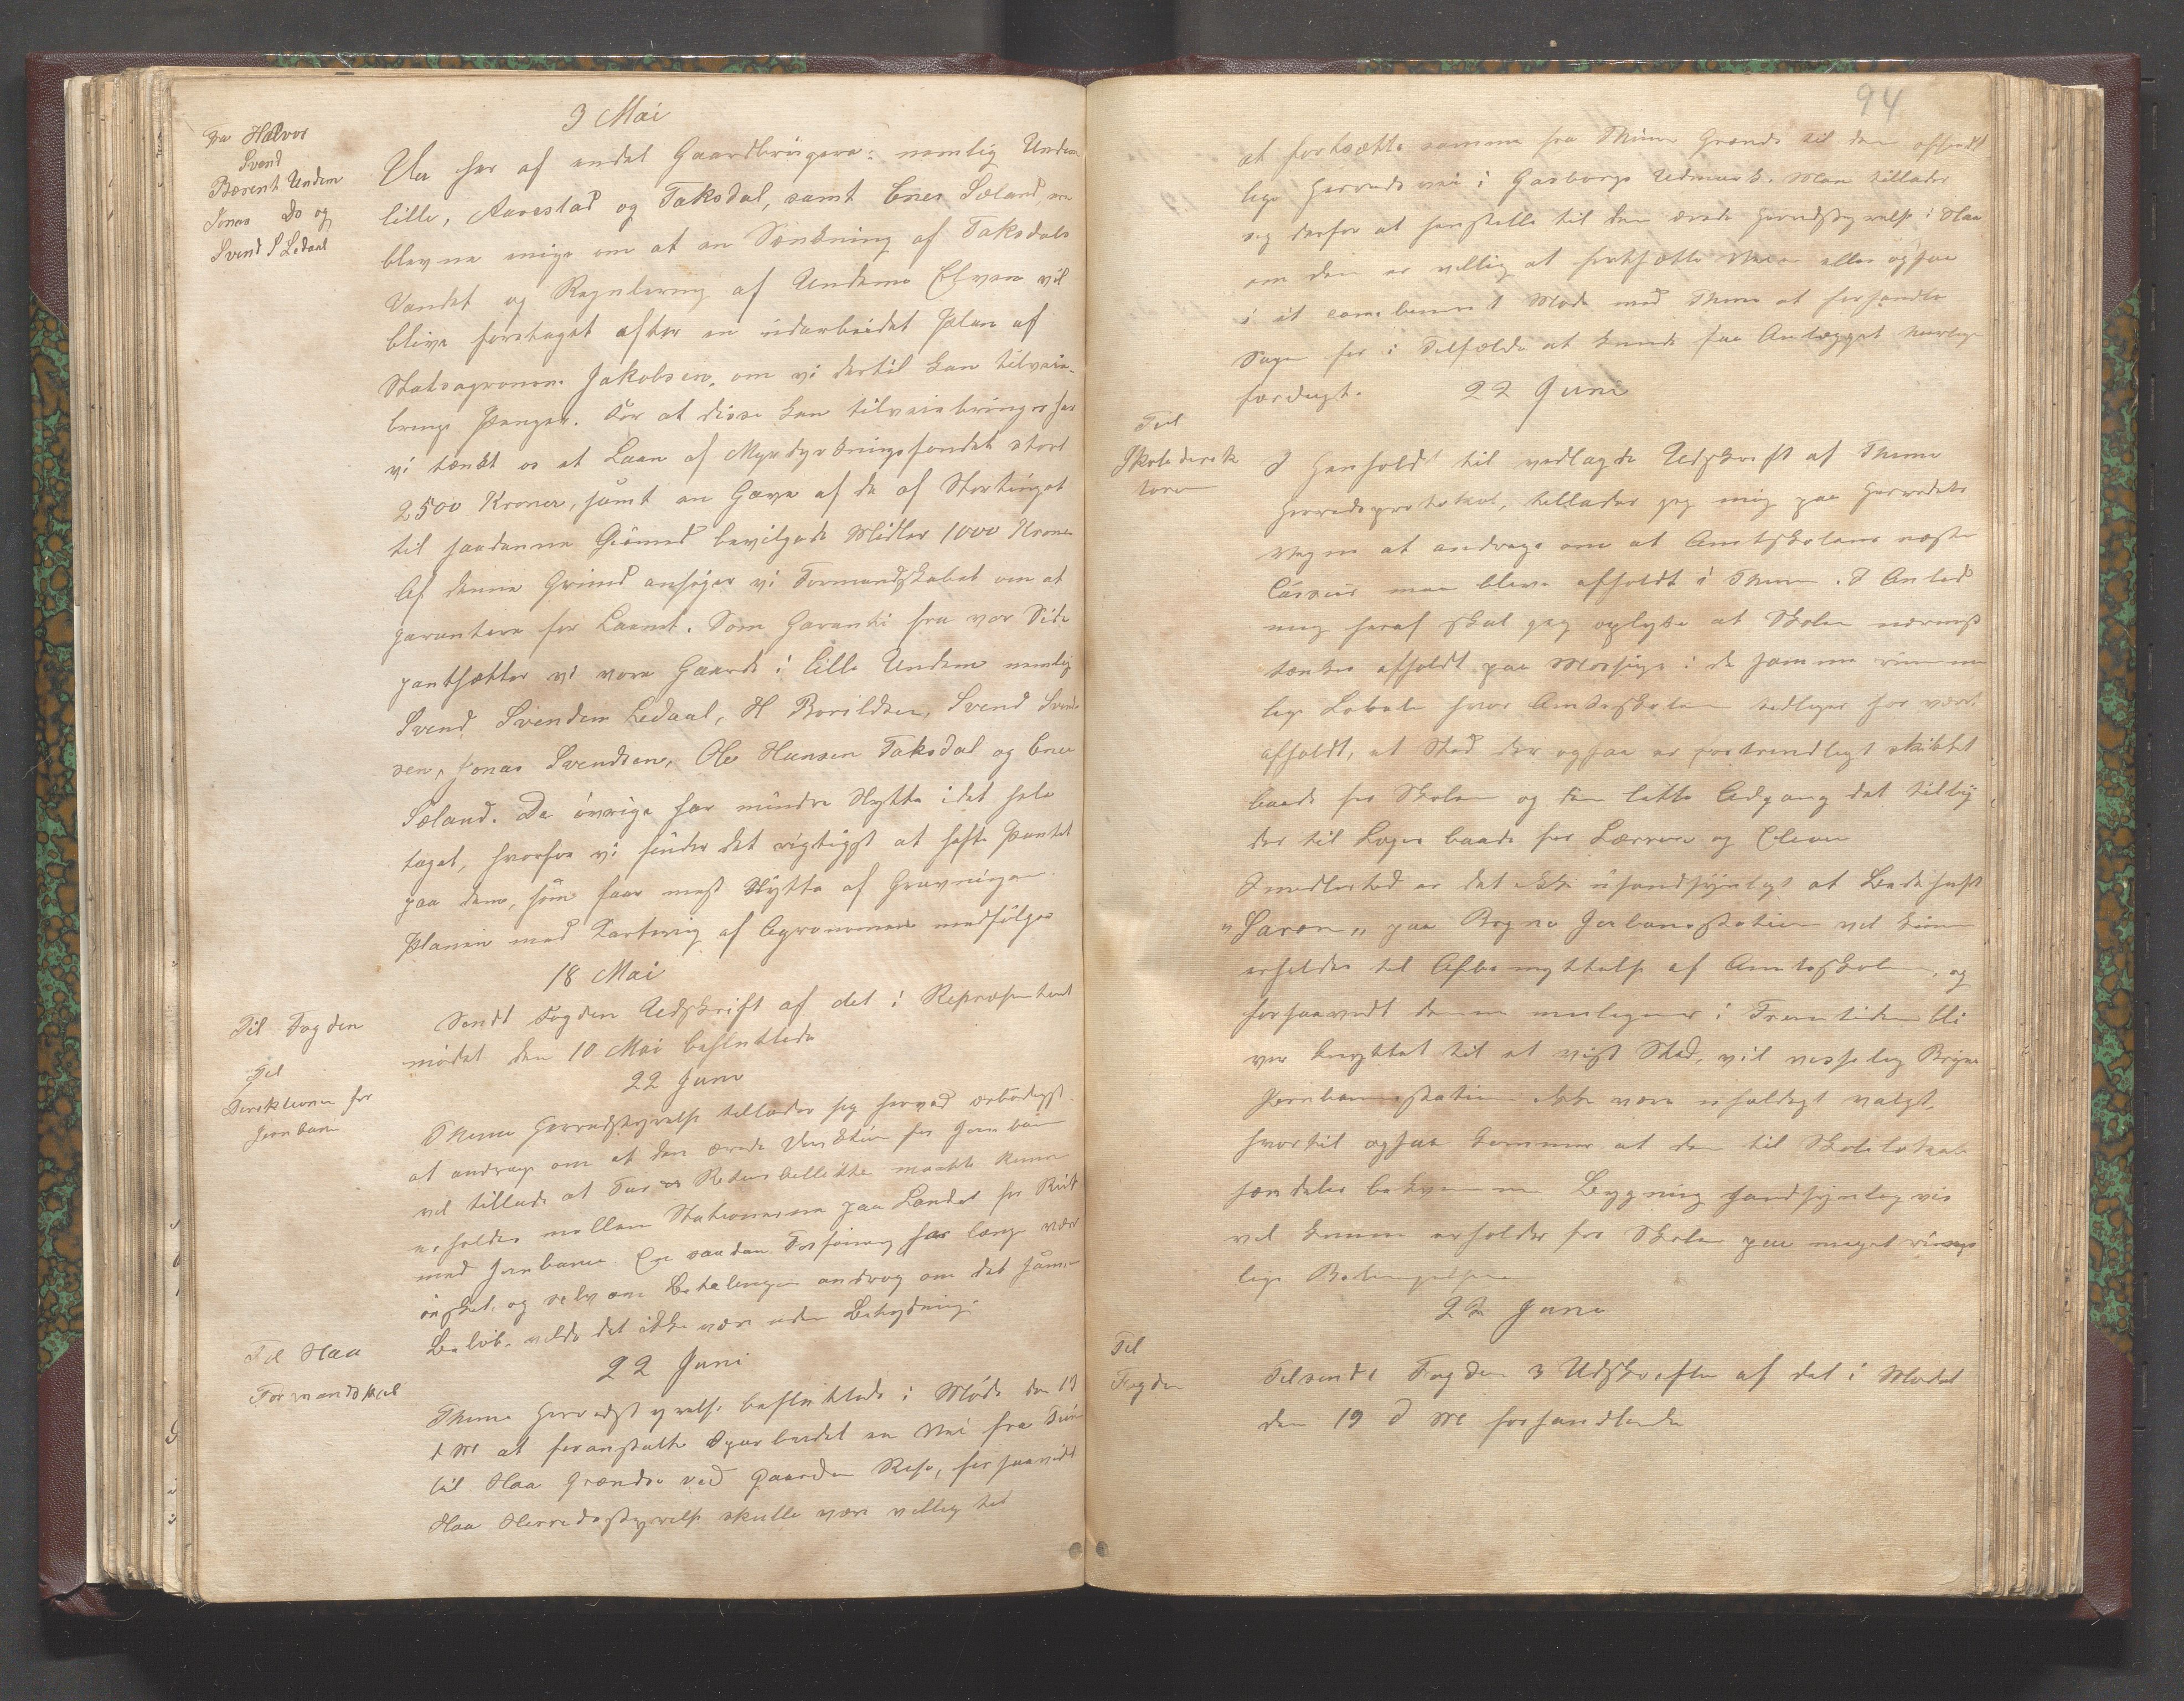 3 Mai
Fra Halvor
Svend
Berent Undem
Jonas Do og
Svend S Ledaal
Da her af endel Gaardbrugere: nemlig Undem
lille, Aarestad og Taksdal, samt Enes Sæland, ere
blevne enige om at en Sænkning af Taksdals
Vandet og Regulering af Undems Elven vil
blive foretaget efter en udarbeidet Plan af
Statsagronom Jakobsen, om vi dertil kan tilveie-
bringe Penger. For at disse kan tilveiebringes har
vi tænkt os et Laan af Myrdyrkningsfondet stort
2500 Kroner, samt en Gave af de af Stortinget
til saadanne Øiemed bevilgede Midler 1000 Kroner
Af denne Grund ansøger vi Formandskabet om at
garantere for Laanet. Som Garanti fra vor Side
pantsætter vi vore Gaarde i Lille Undem nemlig
Svend Svendsen Ledaal, H Borildsen, Svend Svend
sen, Jonas Svendsen, Ole Hansen Taksdal og Enes
Sæland. De øvrige har mindre Nytte i det hele
taget, hvorfor vi finder det rigtigst at hefte Pantet
paa dem, som faar mest Nytte af Gravningen.
Planen med Kartering af Agronomen medfølger
18 Mai
Til Fogden
Sendt Fogden Udskrift af det i Repræsentant
mødet den 10 Mai besluttede
22 Juni
Til
Direktionen for
Jernbanen
Thime Herredsstyrelse tillader sig herved ærbødigst
at andrage om at den ærede Direktion for Jernbanen
vil tillade at Tur og Returbilletter maatte kunne
erholdes mellem Stationerne paa Landet for Reise
med Jernbanen. En saadan Foranstaltning har længe vært
ønsket, og selv om Betalingen androg om det samme
Beløb, vilde det ikke være uden Betydning.
22 Juni
Til Haa
Formandskab
Thime Herredsstyrelse besluttede i Møde den 19
d M at foranstalte oparbeidet en Vei fra Time
til Haa Grændse ved Gaarden Re, forsaavidt
Haa Herredsstyrelse skulle være villig til
94
at fortsætte samme fra Thime Grændse til den offentlige
lige Herredsvei i Gasborgs Udmark. Man tillader
sig derfor at henstille til den ærede Herredsstyrelse i Haa
om den er villig at fortsætte Veien eller ogsaa
i et sambenet Møde med Thime at forhandle
Sagen for i Tilfælde at kunde faa Anlægget
færdigt.
22 Juni
Til
Skoledirek
tøren
I Henhold til vedlagde Udskrift af Thime
Herredsprotokol, tillader jeg mig paa Herredets
Vegne at andrage om at Amtskolens næste
Cursus maa blive afholdt i Thime. I Anled
ning heraf skal jeg oplyse at Skolen nærmest
tænkes afholdt paa Mossige i de samme rumme
lige Lokale hvor Amtsskolen tidligere har vært
afholdt, et Sted der ogsaa er fortrindligt skikket
baade for Skolen og den lette Adgang det tilby
der til Logis baade for Lærere og Elever
Imidlertid er det ikke usandsynligt at Bedehuset
"Saron" paa Bryne Jerbanestation vil kunne
erholdes til Afbenyttelse af Amtsskolen, og
forsaavidt denne muligens i Fremtiden bli
ver knyttet til et vist Sted, vil visselig Bryne
Jernbanestation ikke være uheldigt valgt,
hvortil ogsaa kommer at den til Skolelokale
særdeles bekvemme Bygning sandsynligvis
vil kunne erholdes for Skolen paa meget rime
lige Betingelser
22 Juni
Til
Fogden
Tilsendt Fogden 3 Udskrifter af det i Mødet
den 19 d M forhandlede